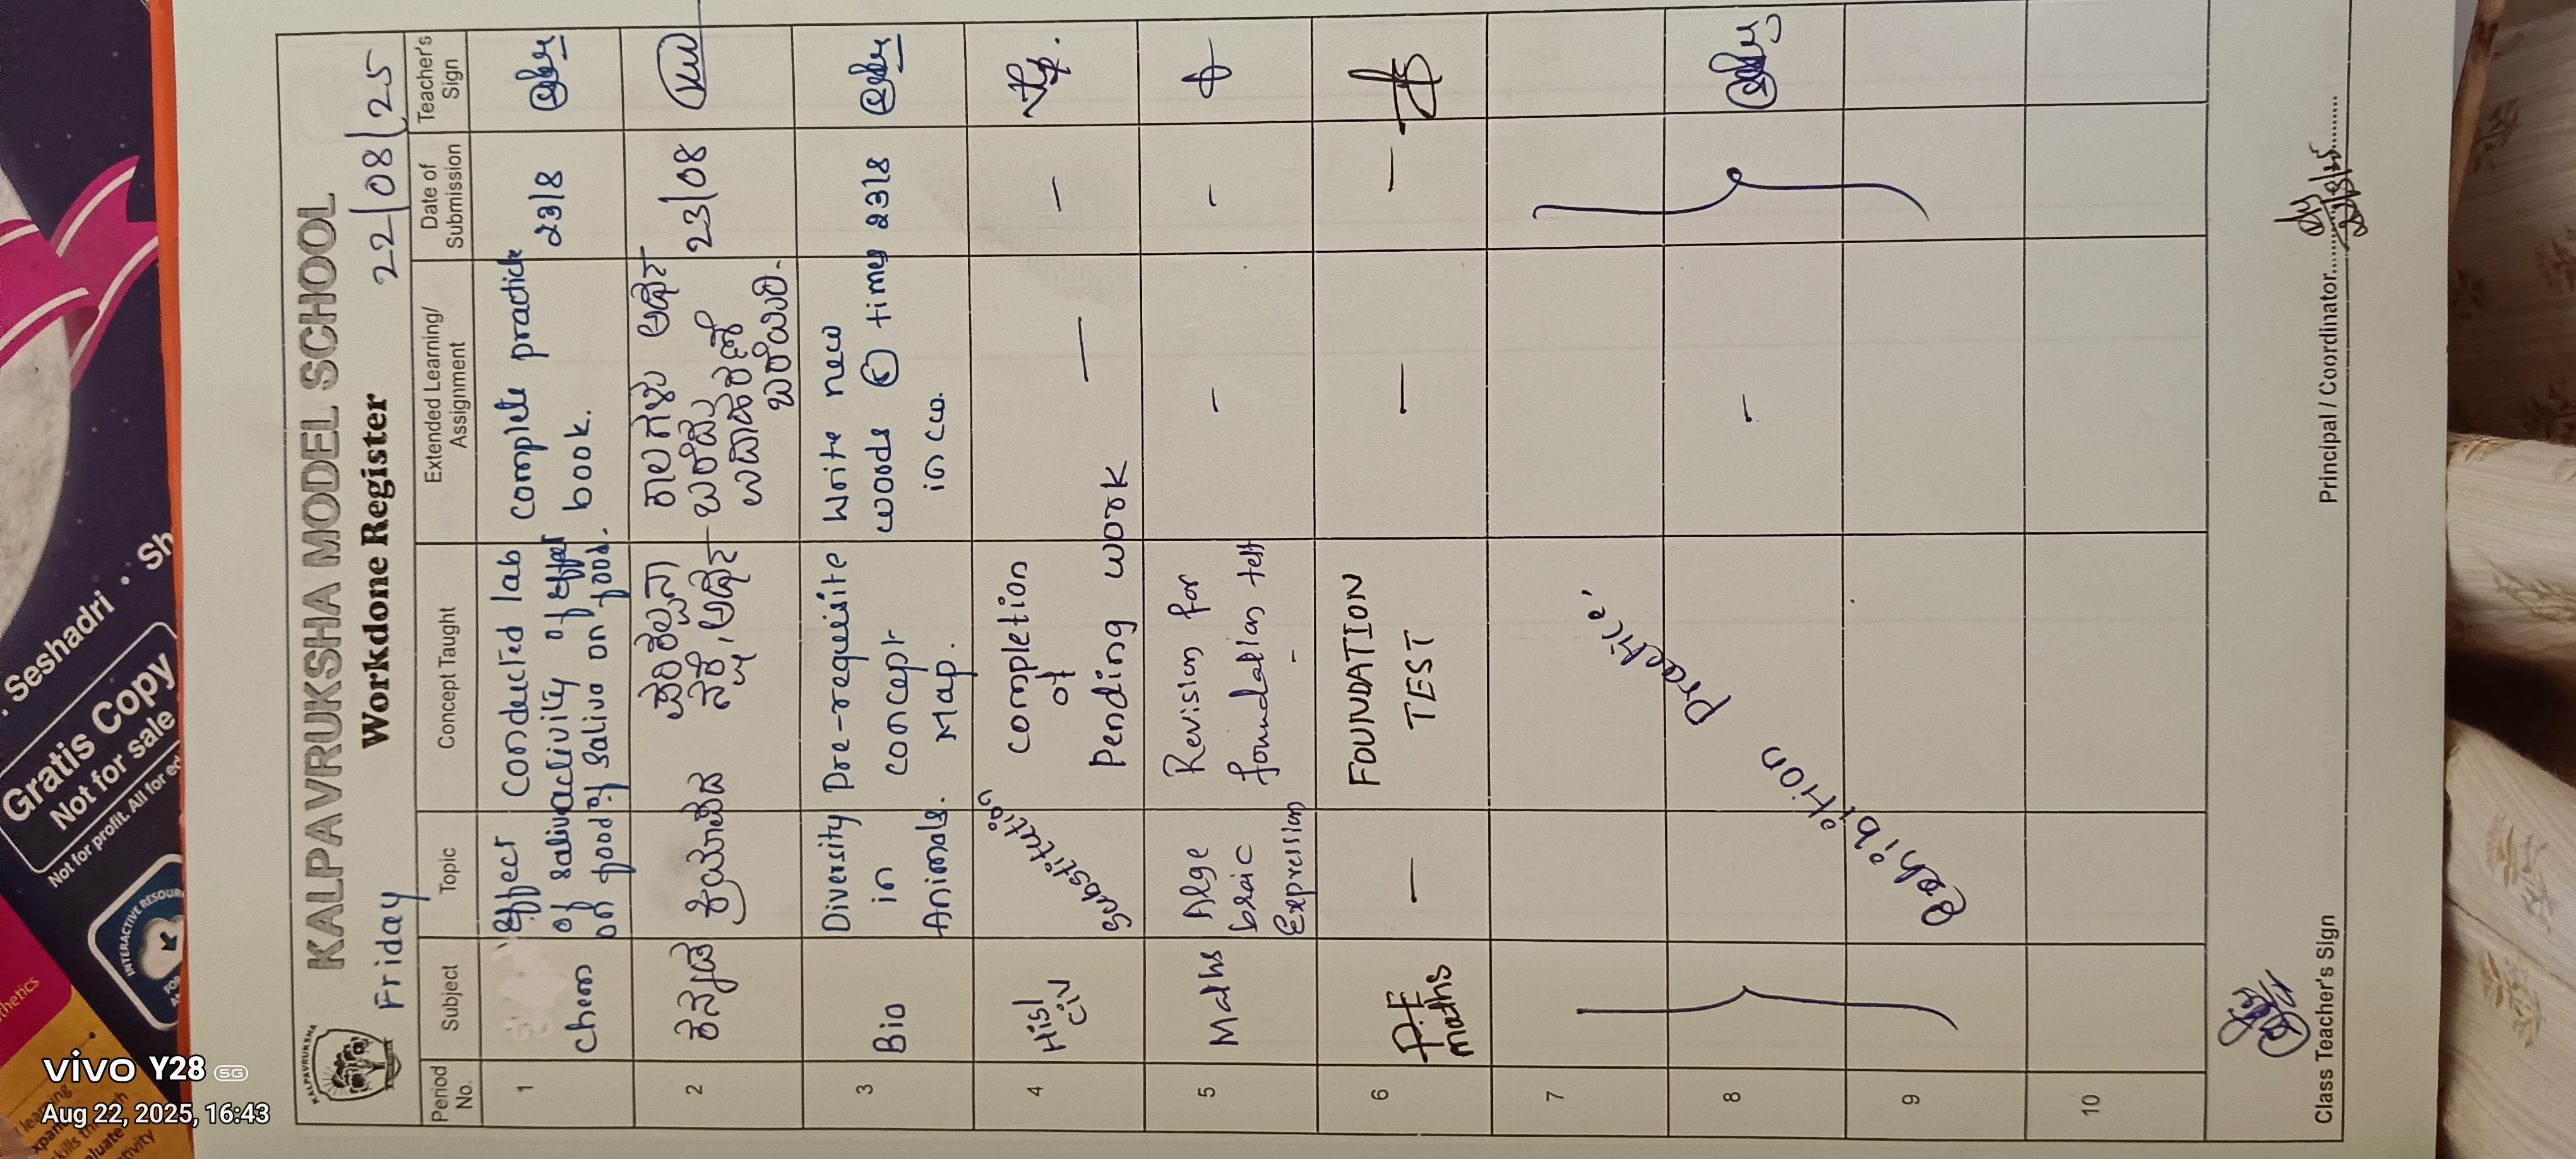 KALPAVRUKSHA MODEL SCHOOL
Workdone Register
Friday
22/08/25
Period No.
Subject
Topic
Concept Taught
Extended Learning/ Assignment
Date of Submission
Teacher's Sign
1
Chem
Effect
of saliva
on food
Conducted lab
activity of effect
of saliva on food.
Complete practice
book.
23/8
2
ಕನ್ನಡ
ಕ್ರಿಯಾಪದ
23/08
3
Bio
Diversity
in
Animals.
Pre-requisite
concept
Map.
Write new
words ⑤ times
in cw.
23/8
4
Hist
civ
Substitution
completion
of
Pending work
—
—
5
Maths
Alge
braic
Expression
Revision for
foundation test
-
-
-
6
P.E
maths
—
FOUNDATION
TEST
—
—
7
8
9
10
Exhibition Practice.
-
Class Teacher's Sign
Principal / Coordinator
KALPAVRUKSHA
Seshadri • Sh
Gratis Copy
Not for sale
Not for profit. All for ed
INTERACTIVE RESOUR
thetics
learning
vivo Y28 5G
Aug 22, 2025, 16:43